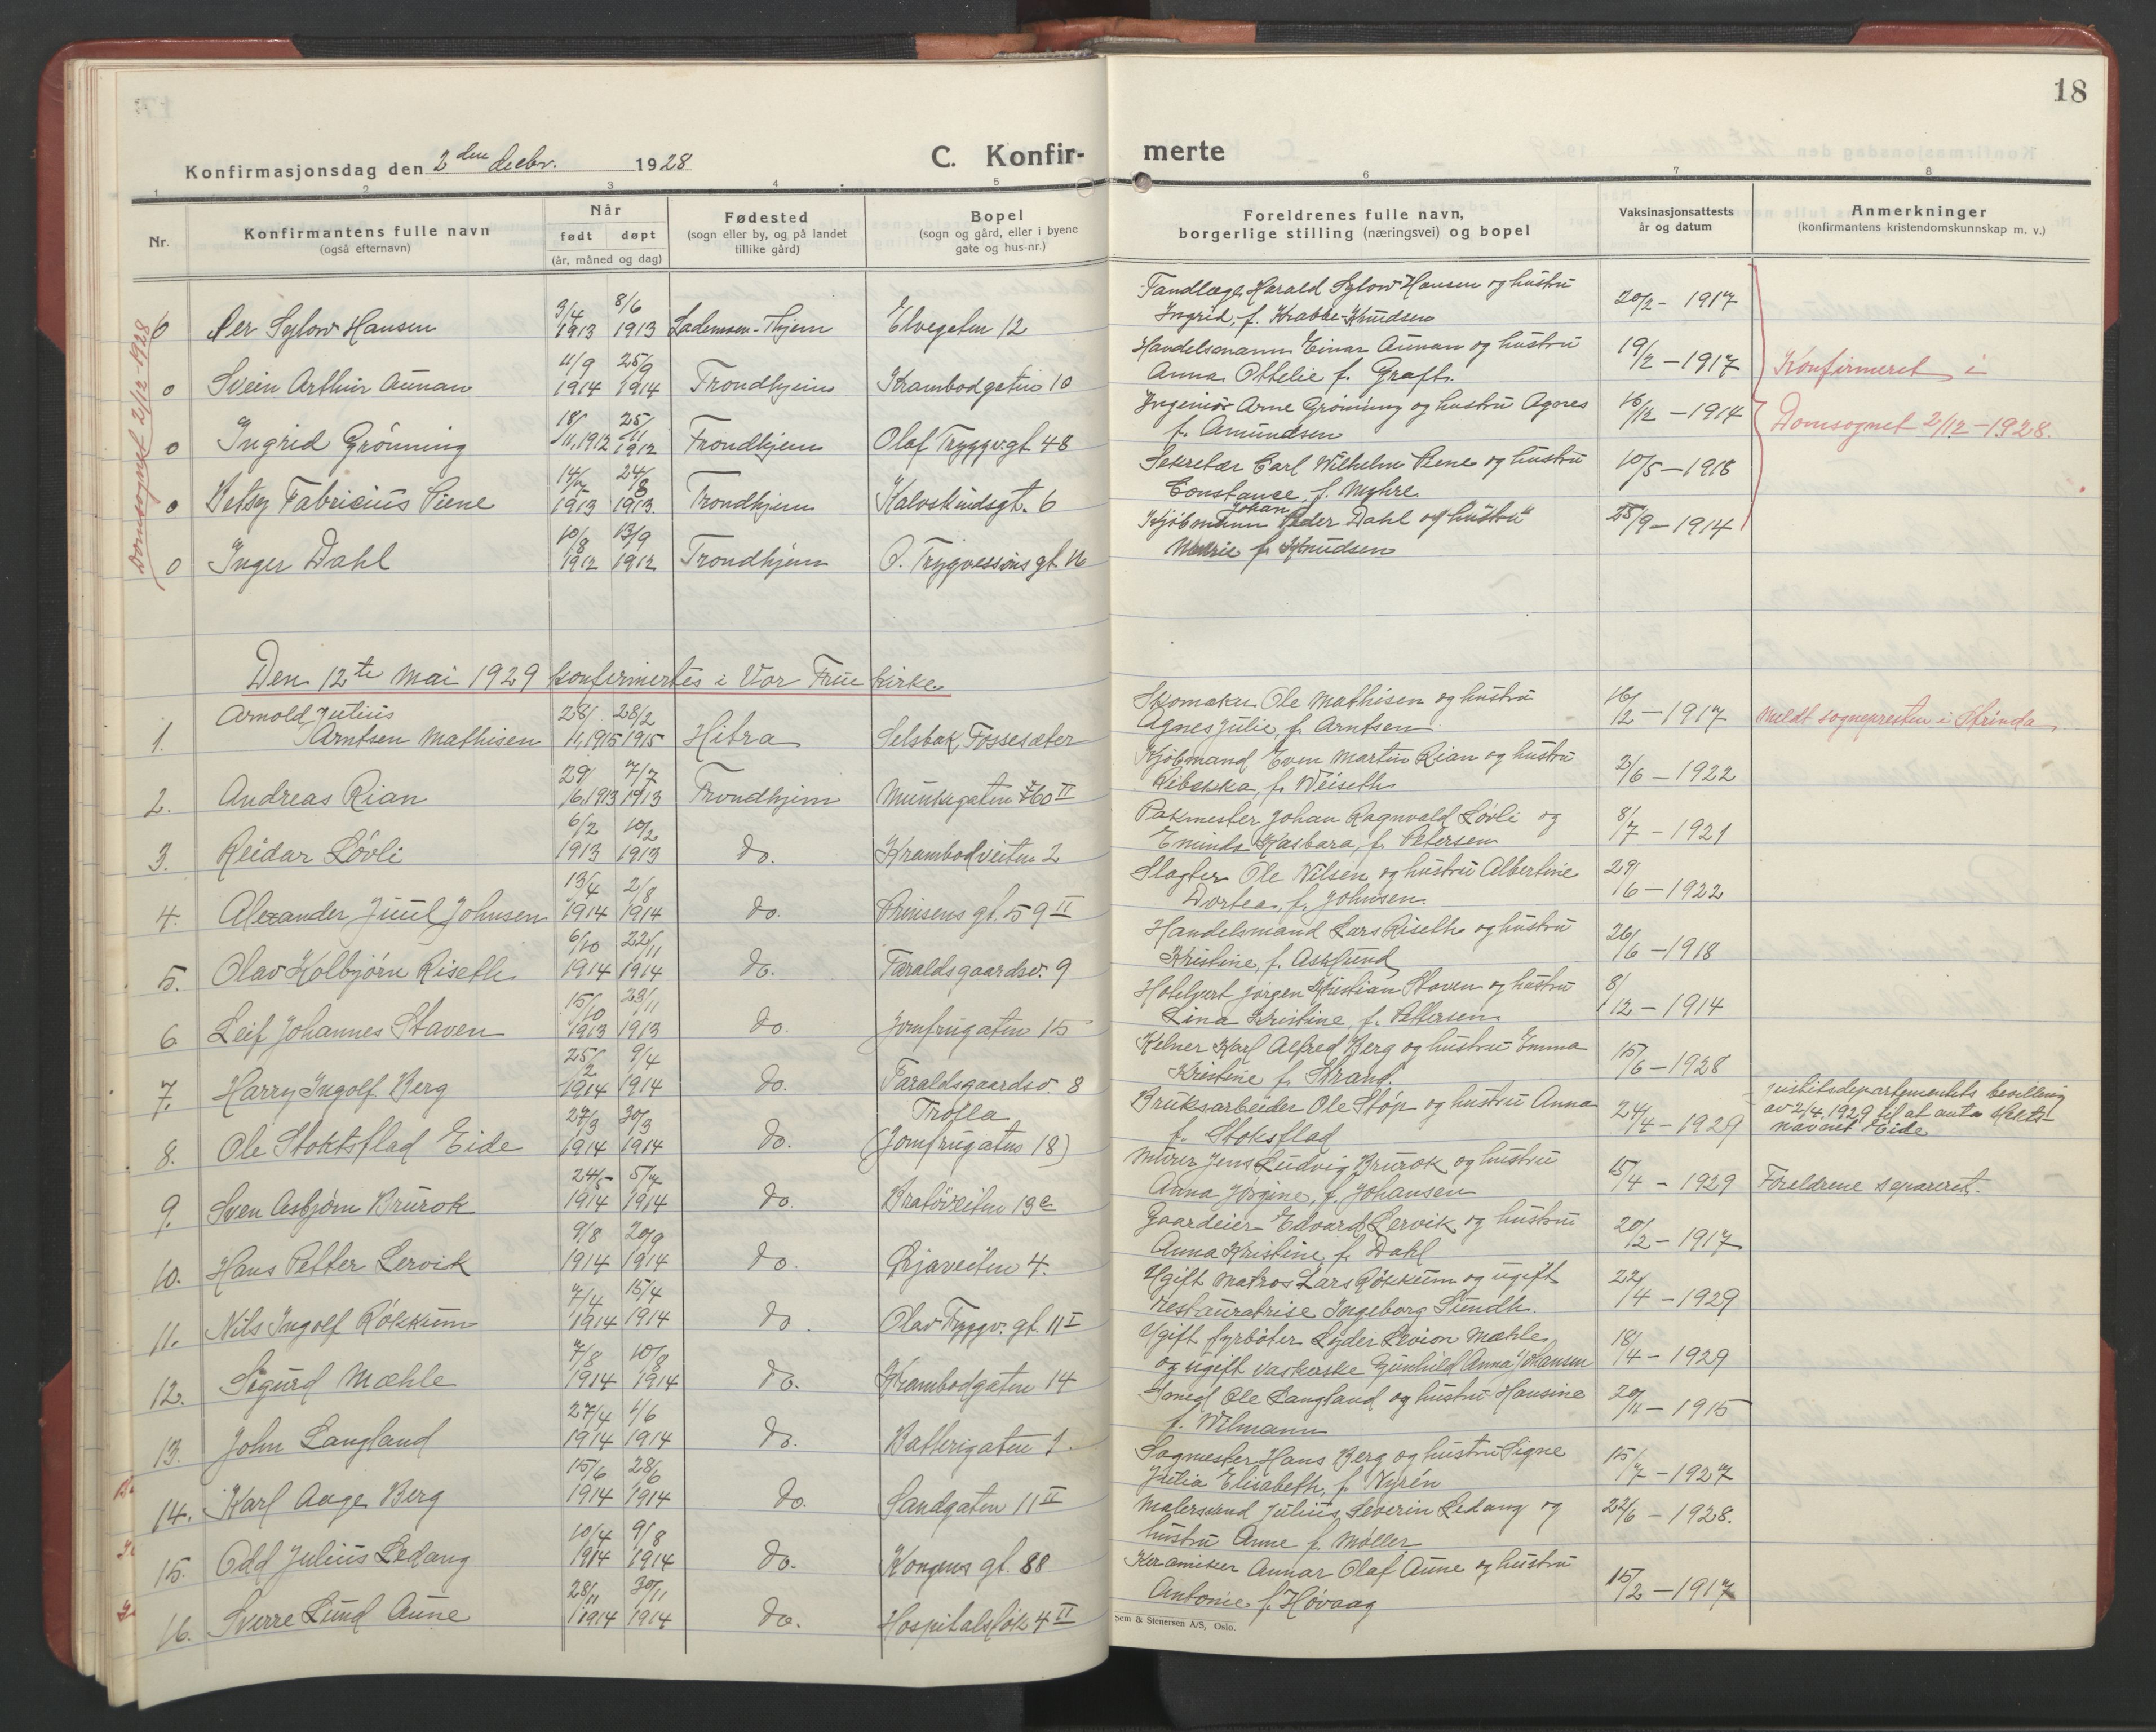 18
Konfirmasjonsdag den 2den decbr. 1928
C. Konfir-
merte
1 2 3 4 5 6 7 8
Nr.
Konfirmantens fulle navn
(også efternavn)
Når
født døpt
(år, måned og dag)
Fødested
(sogn eller by, og på landet
tillike gård)
Bopel
(sogn og gård, eller i byene
gate og hus-nr.)
Foreldrenes fulle navn,
borgerlige stilling (næringsvei) og bopel
Vaksinasjonsattests
år og datum
Anmerkninger
(konfirmantens kristendomskunnskap m. v.)
Domsognet 2/12-1928
0 Per Sylow Hansen 3/4 1913 8/6 1913 Lademoen-Thjem Elvegaten 12
Tandlæge Harald Sylow Hansen og hustru
Ingrid, f. Krabbe-Knudsen 20/2 - 1917
0 Svein Arthur Aunan 4/9 1914 25/9 1914 Trondhjem Krambodgaten 10
Handelsmann Einar Aunan og hustru
Anna Ottelie f. Graft. 19/2 - 1917
Konfirmeret i
Domsognet 2/12-1928.
0 Ingrid Grönning 18/11, 1912 25/11 1912 Trondhjem Olaf Tryggv.gt. 48
Ingeniör Arne Grönning og hustru Agnes
f. Amundsen 16/12 - 1914
0 Betsy Fabricius Piene 14/7 1913 24/8 1913. Trondhjem Kalvskindsgt. 6
Sekretær Carl Wilhelm Piene og hustru
Constance, f. Myhre 10/5 - 1918
0 Inger Dahl 10/8 1912 13/9 1912 Trondhjem O. Trygvessöns gt. 16
Johan
Kjöbmann Peder Dahl og hustru
Marie f. Knudsen 25/9 - 1914
Den 12te Mai 1929 konfirmertes i Vor Frue kirke
1. Arnold Julius
Arntsen Mathisen 28/1, 1915 28/2 1915 Hitra Selsbak, Fossesæter
Skomaker Ole Mathisen og hustru
Agnes Julie, f. Arntsen 16/2 - 1917 Meldt sognepresten i Strinda
2. Andreas Rian 29/6, 1913 7/7 1913 Trondhjem Munkegaten 60 II
Kjöbmand Even Martin Rian og hustru
Ribekka, f. Weiseth 3/6 - 1922
3. Reidar Lövli 6/2 1913 10/2 1913 do. Krambodveiten 2
Pakmester Johan Ragnvald Lövli og
Eminda Kasbara, f. Petersen 8/7 - 1921
4. Alexander Juul Johnsen 13/4 1914 2/8 1914 do. Prinsens gt. 59 II
Slagter Ole Nilsen og hustru Albertine
Dortea, f. Johnsen 29/6 - 1922
5. Olav Kolbjörn Riseth 6/10 1914 22/11 1914 do. Taraldsgaardsv. 9
Handelsmand Lars Riseth og hustru
Kristine, f. Asklund 26/6 - 1918
6 Leif Johannes Staven 15/10 1913 23/11 1913 do. Jomfrugaten 15
Hotelvert Jörgen Kristian Staven og hustru
Lina Kristine, f. Pettersen 8/12 - 1914
7. Harry Ingolf Berg 25/2 1914 9/4 1914 do. Taraldsgaardsv. 8
Kelner Karl Alfred Berg og hustru Emma
Kristine f. Strand. 15/6 - 1928
8. Ole Stoktsflad Eide 27/3 1914 30/3 1914 do. Trolla
(Jomfrugaten 18)
Bruksarbeider Ole Stöp og hustru Anna
f. Stoksflad 24/4 - 1929
Justitsdepartementets bevilling
av 2/4. 1929 til at anta slekts-
navnet Eide
9. Sven Asbjörn Brurok 24/5 1914 5/7 1914 do. Bratörveiten 13 c
Murer Jens Ludvig Brurok og hustru
Anna Jörgine, f. Johansen 15/4 - 1929 Foreldrene separeret.
10. Hans Petter Lervik 9/8 1914 20/9 1914 do. Örjaveiten 4.
Gaardeier Edvard Lervik og hustru
Anna Kristine f. Dahl 20/2 - 1917
11. Nils Ingolf Rökkum 7/4 1914 15/4 1914 do. Olav Tryggv. gt. 11 I
Ugift matros Lars Rökkum og ugift
restauratrise Ingeborg Sundh. 22/4 - 1929
12. Sigurd Mæhle 7/8 1914 10/8 1914 do. Krambodgaten 14
Ugift fyrböter Lyder Levion Mæhle
og ugift vaskerske Gunhild Anna Johansen 18/4 - 1929
13. John Langland 27/4 1914 1/6 1914 do. Batterigaten 1.
Ole Langland og hustru Hansine
f. Wilmann 20/11 - 1915
14. Karl Aage Berg 15/6 1914 28/6 1914 do. Sandgaten 11 II
Sagmester Hans Berg og hustru Signe
Julia Elisabeth, f. Nyrén 15/7 - 1927
15. Odd Julius Ledang 10/4 1914 9/8 1914 do. Kongens gt. 88
Malersvend Julius Severin Ledang og
hustru Anne f. Möller 22/6 - 1928.
16. Sverre Lund Aune 28/11 1914 30/11 1914 do. Hospitalslök 4 II
Keramiker Annar Olaf Aune og hustru
Antonie f. Hövaag 15/2 - 1917
Sem & Stenersen A/S, Oslo.